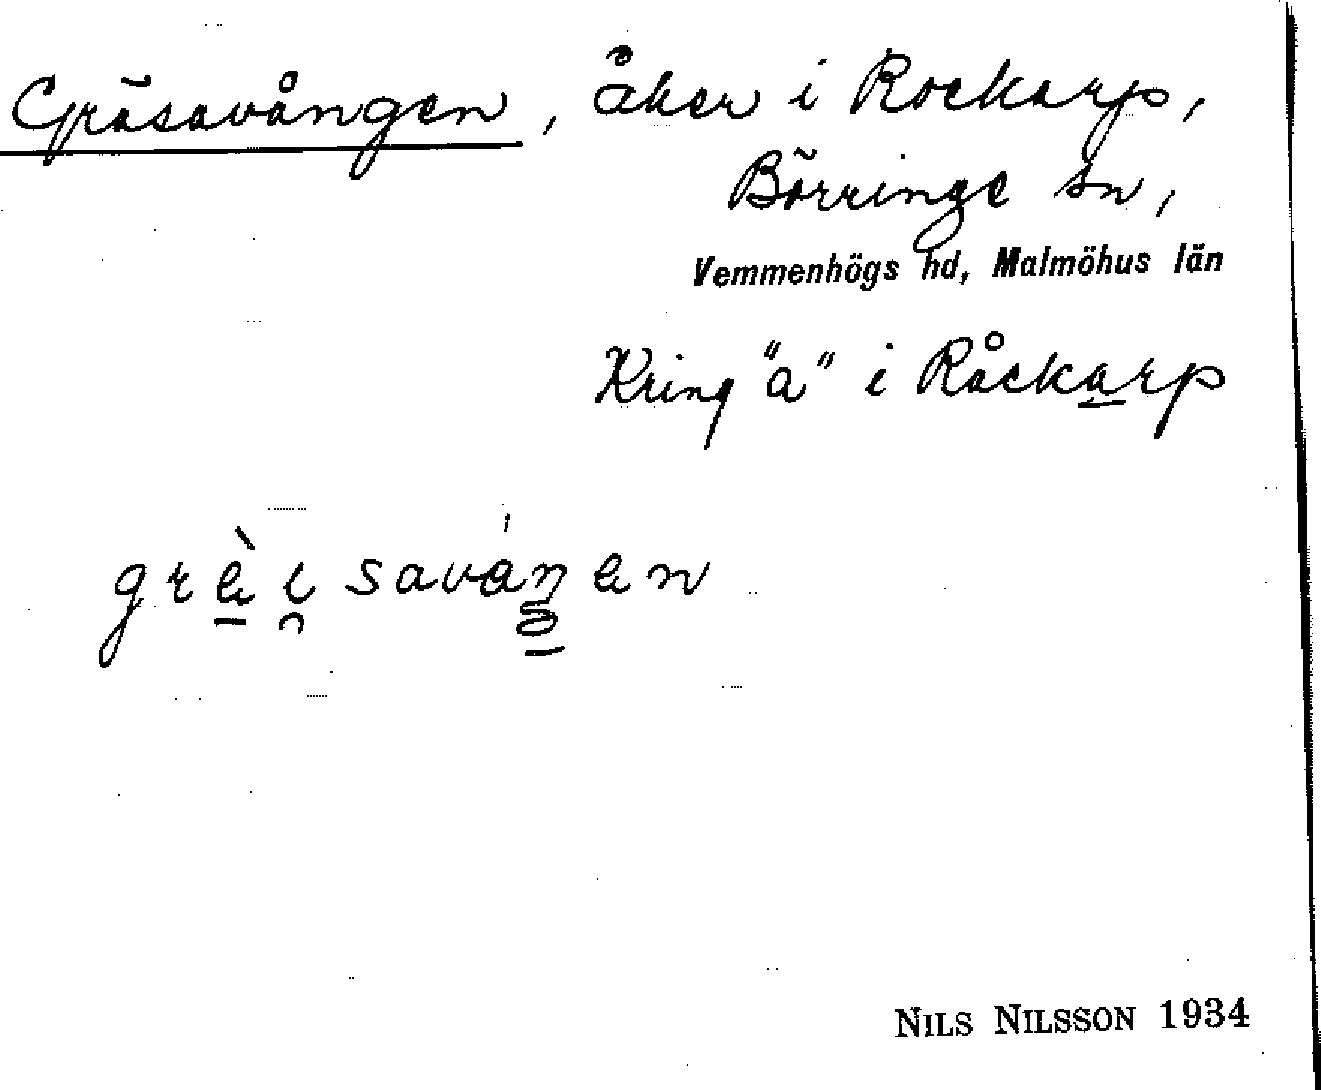 Gräsavången, åker i Rockarp,
Börringe sn,
Vemmenhögs hd, Malmöhus län
Kring "a" i Råckarp
grèi savaŋen
NILS NILSSON 1934